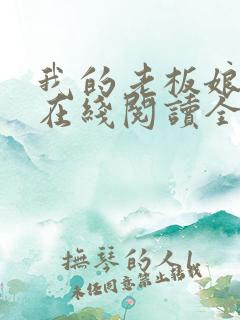 我的老板娘
在綫閱讀全
撫琴的人
未经同意禁止转载